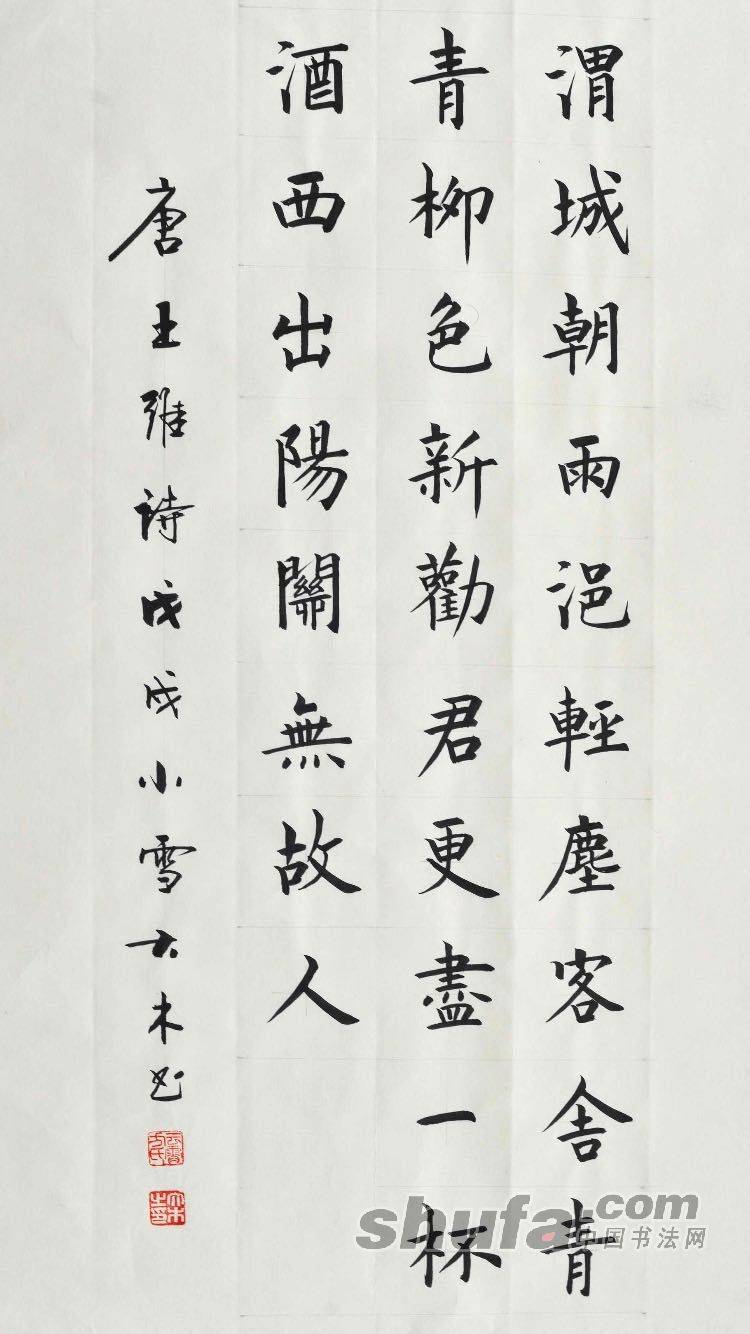 渭城朝雨浥輕塵客舍青
青柳色新勸君更盡一杯
酒西出陽關無故人
唐王維詩戊戌小雪大木书
shufa.com
中国书法网